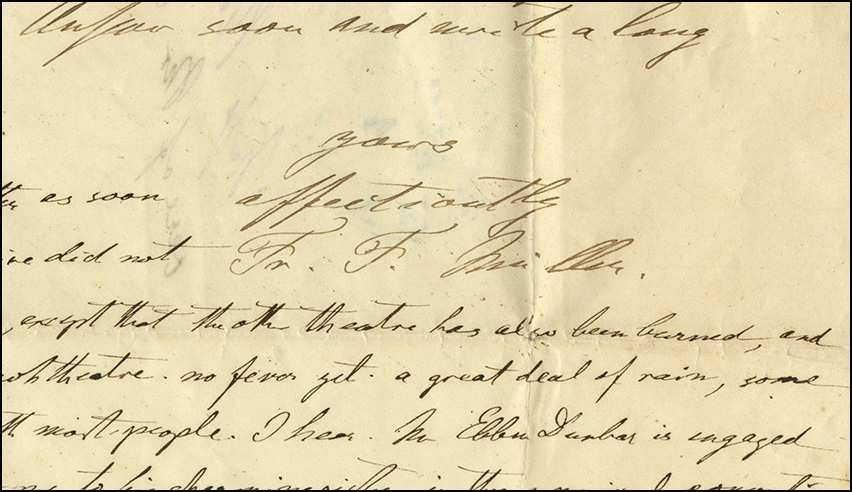 Answer soon and write a long
yours
as soon affectiontly
did not Fr. F. Miller.
, except that the other theatre has also been burned, and
theatre. no fever yet. a great deal of rain, some
most people. I hear Eben Dunbar is engaged
to be